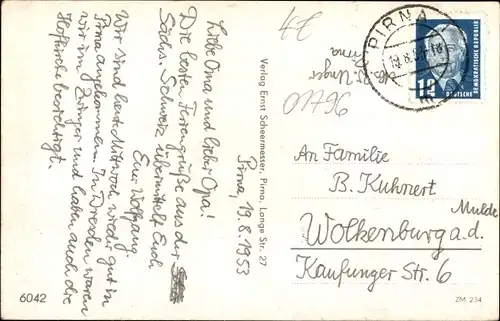 Pirna, 19.8.1953
Liebe Oma und lieber Opa!
Die besten Feriengrüße aus der
Sächs. Schweiz übermittelt Euch
Euer Wolfgang.
Wir sind heut Mittwoch wieder gut in
Pirna angekommen. In Dresden waren
wir im Zwinger und haben auch die
Hofkirche besichtigt.
6042
Verlag Ernst Scheermesser, Pirna, Lange Str. 27
PIRNA
DEUTSCHE
DEMOKRATISCHE REPUBLIK
12
Unger
Pirna
An Familie
B. Kuhnert
Wolkenburg a.d. Mulde
Kaufunger Str. 6
ZM 234